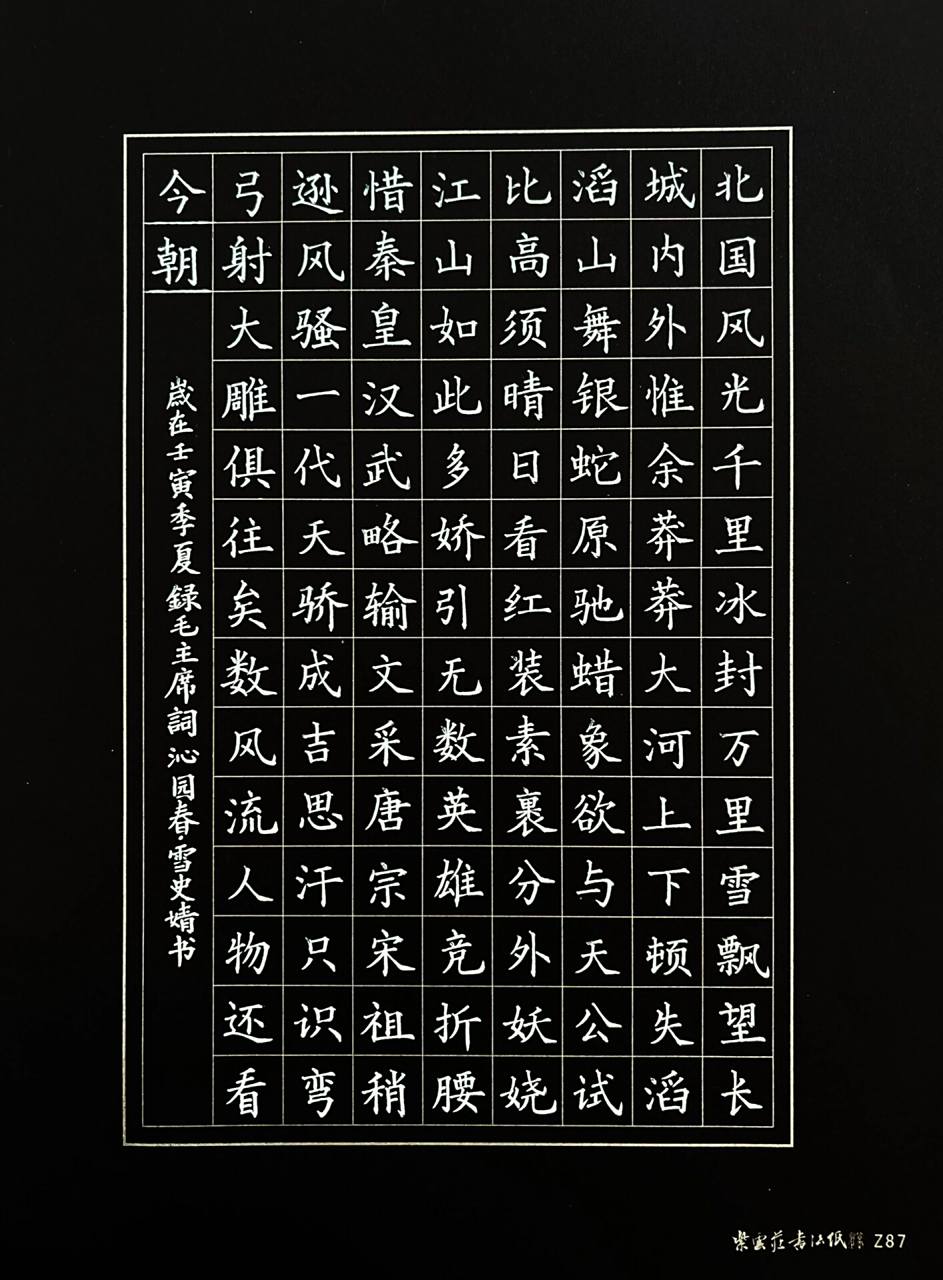 北国风光千里冰封万里雪飘望长
城内外惟余莽莽大河上下顿失滔
滔山舞银蛇原驰蜡象欲与天公试
比高须晴日看红装素裹分外妖娆
江山如此多娇引无数英雄竞折腰
惜秦皇汉武略输文采唐宗宋祖稍
逊风骚一代天骄成吉思汗只识弯
弓射大雕俱往矣数风流人物还看
今朝
歲在壬寅季夏録毛主席詞沁园春·雪史婧书
紫雲莊書法纸 Z87